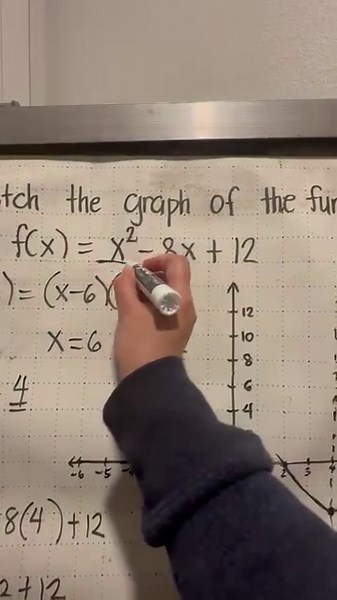 tch the graph of the fun
f(x) = x² - 8x + 12
) = (x-6)(
x=6
4
8(4)+12
2+12
12
10
8
6
4
-6 -5
2 3